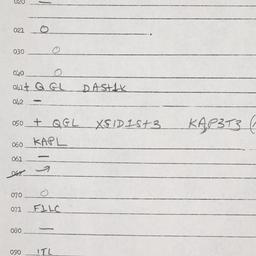 020 —
021 O
030 O
040 O
041 + QGL DASt1X
042 —
050 + QGL XSID1St3 KAP3T3 (
060 KAPL
061 —
070 O
071 F1LC
080 —
090 ITL